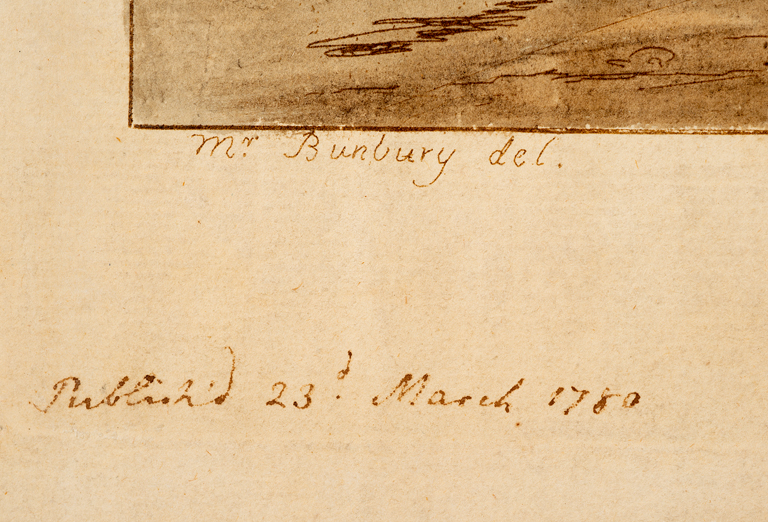 Mr. Bunbury del.
Publish'd 23d. March 1780